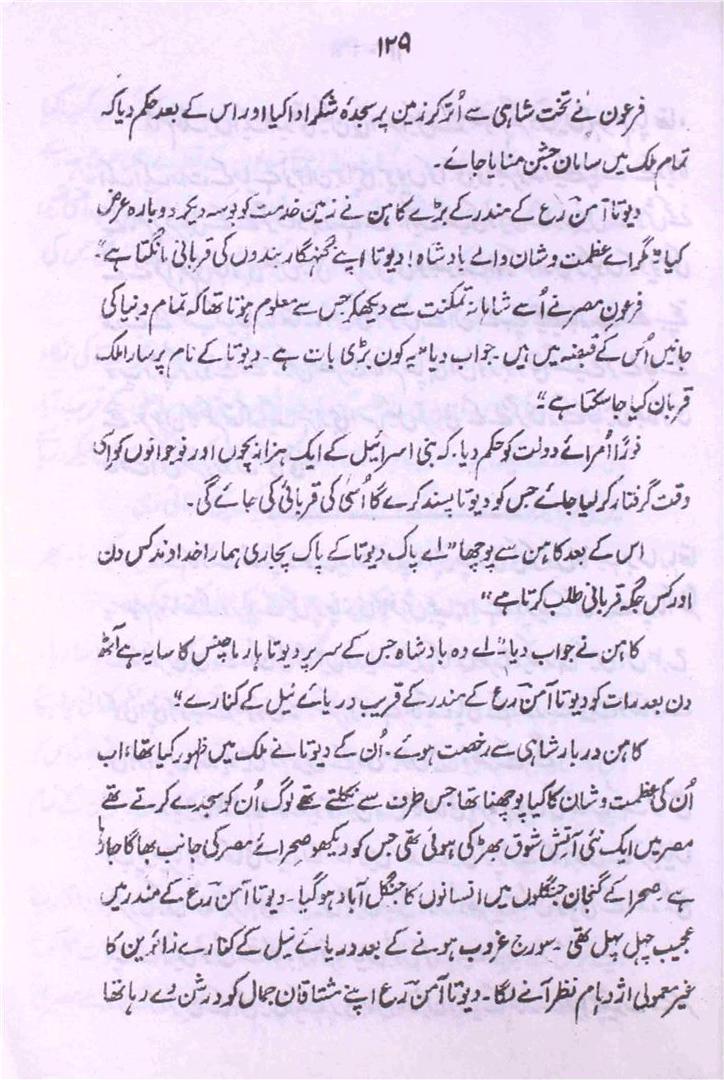 ۱۲۹
فرعون نے تخت شاہی سے اُتر کر زمین پر سجدۂ شکر ادا کیا اور اس کے بعد حکم دیا کہ
تمام ملک میں سامان جشن منایا جائے۔
دیوتا آمن رَع کے مندر کے بڑے کاہن نے زمین خدمت کو بوسہ دیکر دوبارہ عرض
کیا ”مگر اے عظمت و شان والے بادشاہ! دیوتا اپنے گنہگار بندوں کی قربانی مانگتا ہے“۔
فرعونِ مصر نے اُسے شاہانہ تمکنت سے دیکھکر جس سے معلوم ہوتا تھا کہ تمام دنیا کی
جانیں اُس کے قبضہ میں ہیں۔ جواب دیا ”یہ کون بڑی بات ہے۔ دیوتا کے نام پر سارا ملک
قربان کیا جا سکتا ہے“۔
فوراً اُمرائے دولت کو حکم دیا۔ کہ بنی اسرائیل کے ایک ہزار بچوں اور نوجوانوں کو اِسی
وقت گرفتار کر لیا جائے جس کو دیوتا پسند کرے گا اُسی کی قربانی کی جائے گی۔
اس کے بعد کاہن سے پوچھا ”اے پاک دیوتا کے پاک پجاری ہمارا خداوند کس دن
اور کس جگہ قربانی طلب کرتا ہے“
کاہن نے جواب دیا ”اے وہ بادشاہ جس کے سر پر دیوتا ہار ماچیس کا سایہ ہے آٹھ
دن بعد رات کو دیوتا آمن رَع کے مندر کے قریب دریائے نیل کے کنارے“
کاہن دربار شاہی سے رخصت ہوئے۔ اُن کے دیوتا نے ملک میں ظہور کیا تھا، اب
اُن کی عظمت و شان کا کیا پوچھنا تھا جس طرف سے نکلتے تھے لوگ اُن کو سجدے کرتے تھے
مصر میں ایک نئی آتش شوق بھڑکی ہوئی تھی جس کو دیکھو صحرائے مصر کی جانب بھاگا جا رہا
ہے۔ صحرا کے گنجان جنگلوں میں انسانوں کا جنگل آباد ہو گیا۔ دیوتا آمن رَع کے مندر میں
عجیب چہل پہل تھی۔ سورج غروب ہونے کے بعد دریائے نیل کے کنارے زائرین کا
غیر معمولی اژدہام نظر آنے لگا۔ دیوتا آمن رَع اپنے مشتاقان جمال کو درشن دے رہا تھا